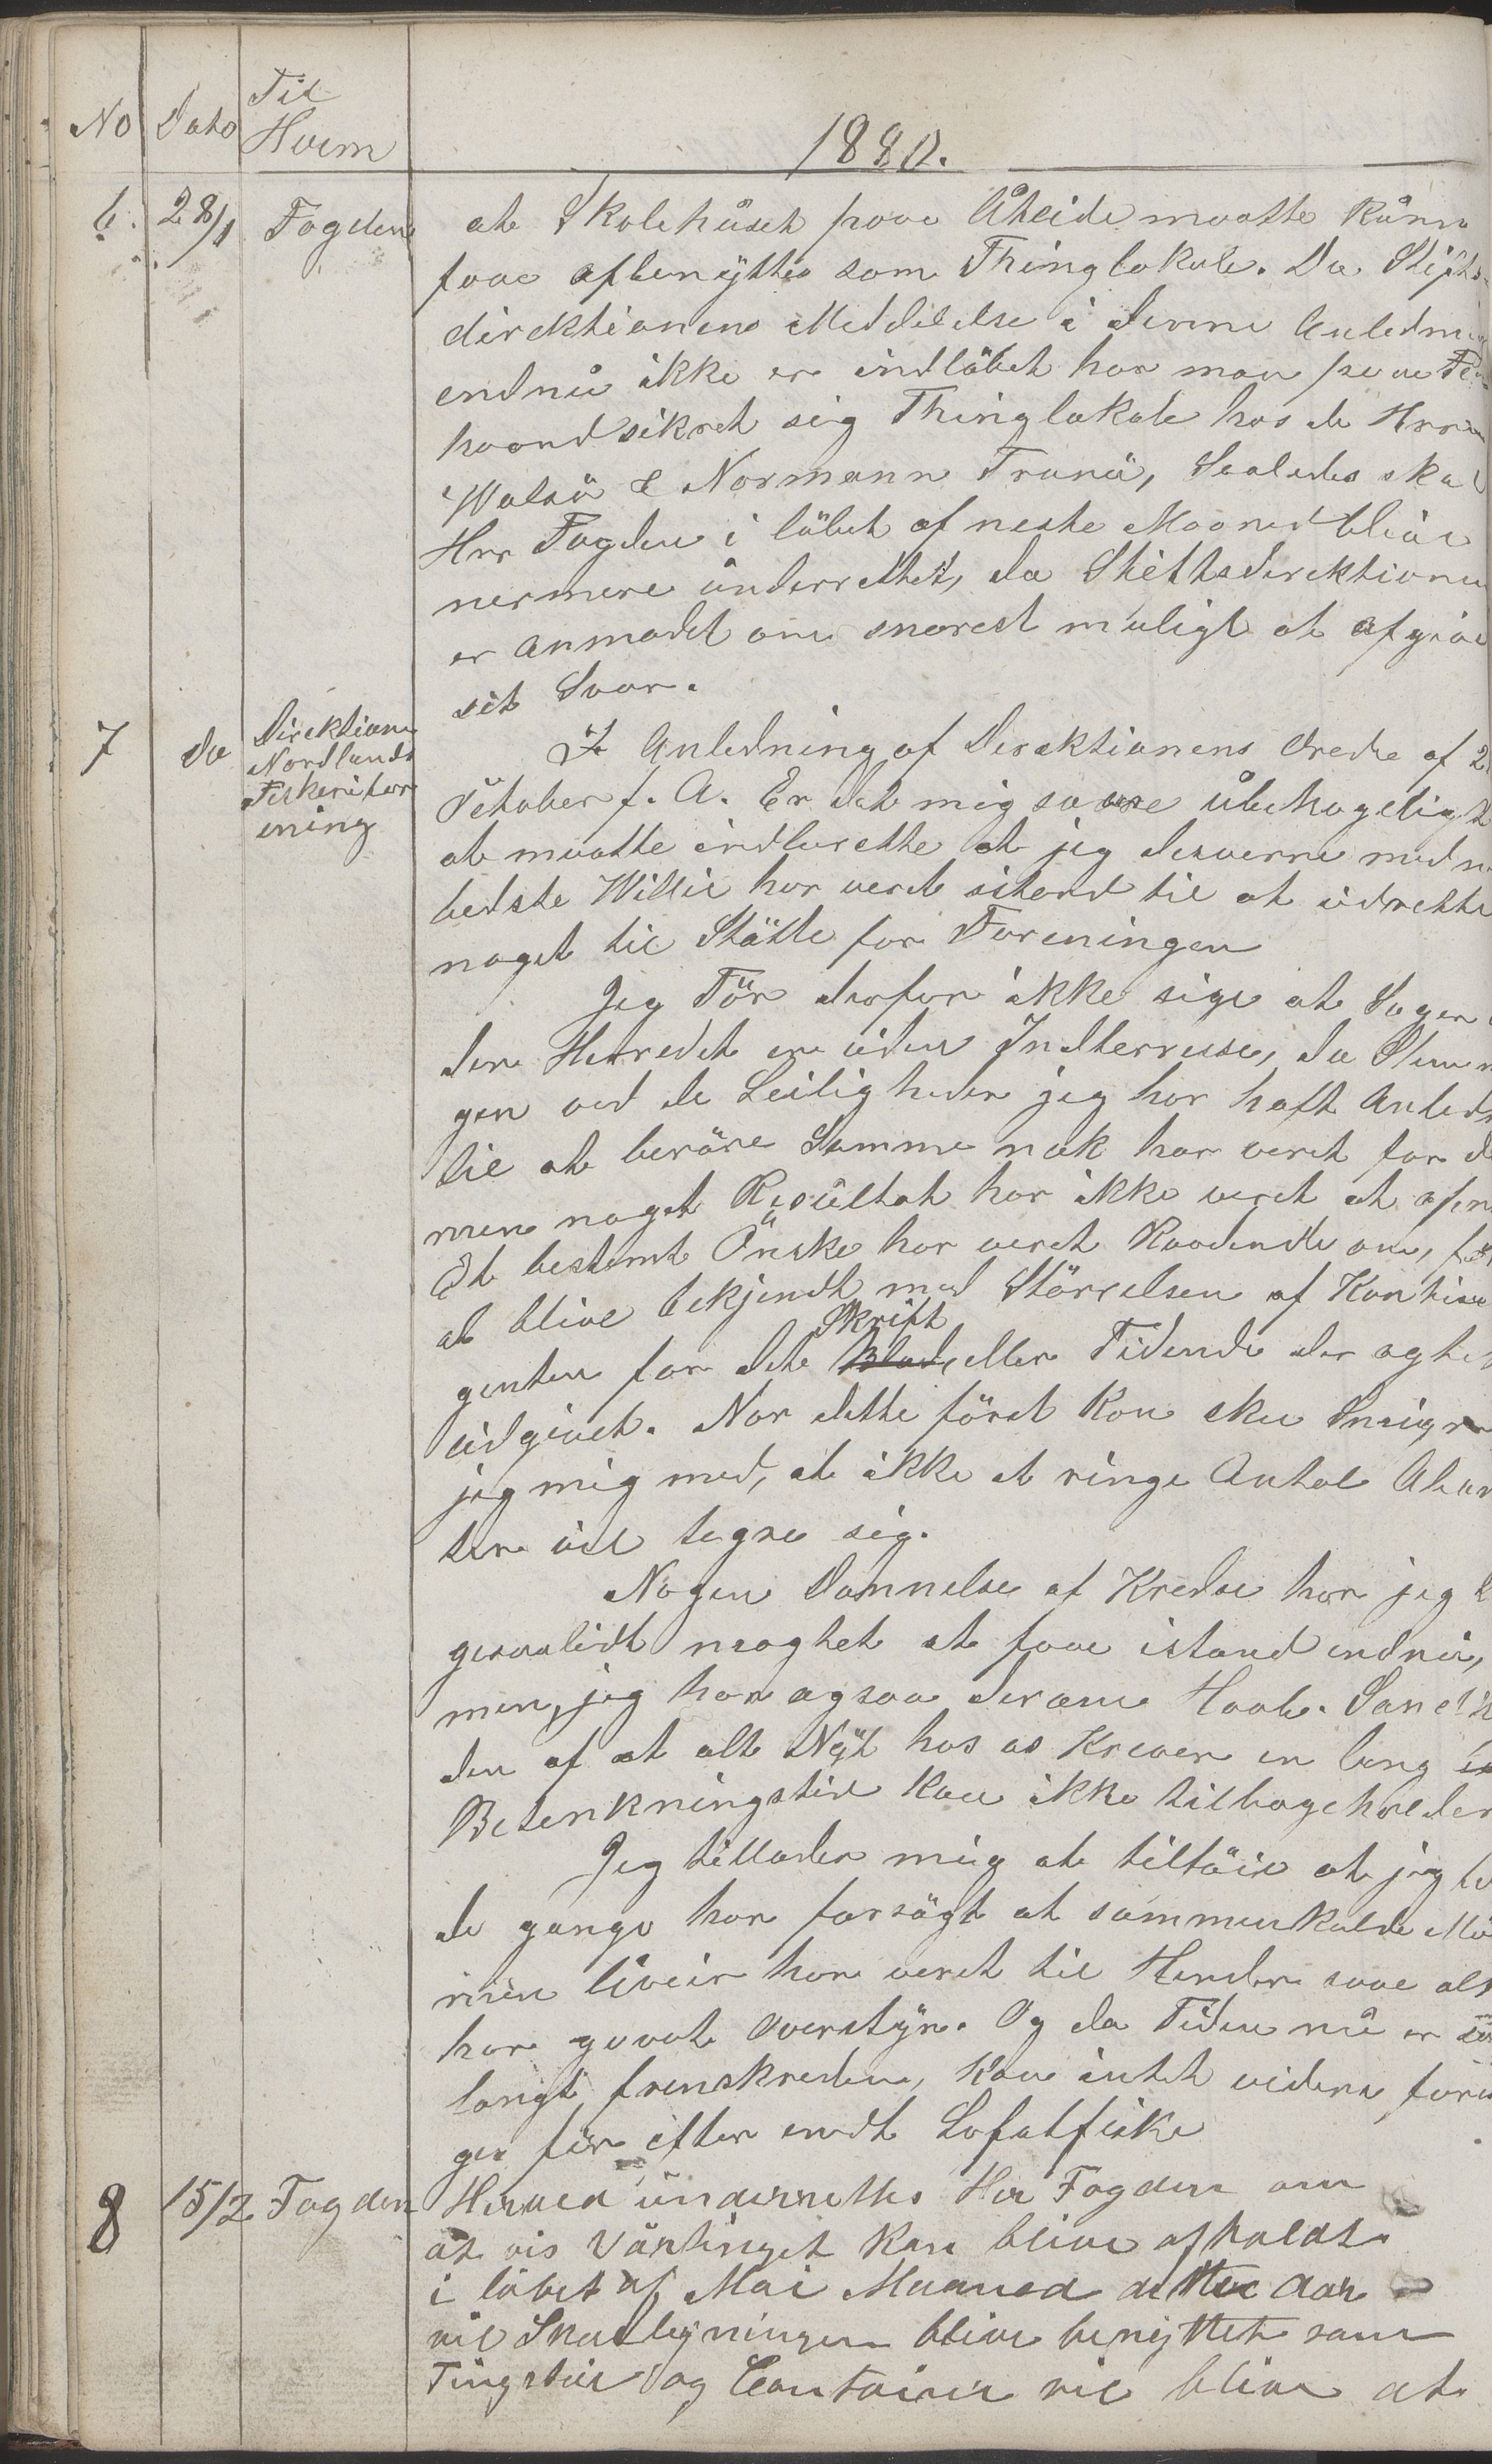 No Dato Til Hvem 1880.
6. 28/1 Fogden at Skolehuset paa Uteide maatte kunn
faae afbenyttes som Thinglokale. Da Stifts-
direktionens Meddelelse i denne Anledn
endnu ikke er indløbet har man paa
haand sikret sig Thinglokale hos de Herr
& Normann Trænø, Saaledes skal
Hrr Fogden i løbet af neste Maaned blive
nermere underrettet, da Stiftsdirektionen
er anmodet om snarest muligt at afgive
sit Svar.
7 do Direktionen Nordlands Fiskeriforening
I Anledning af Direktionens Brev af 2
Oktober f. A. Er det mig saare ubehageligt
at maatte indberette at jeg desverre med
bedste Willie har veret istand til at udrette
noget til Støtte for Foreningen
Jeg Tør derfor ikke sige at Sagen
der Herredet er uden Indterresse, da Stemn
gen ved de Leiligheder jeg har haft Anledn
til at berøre Samme nok har veret for d
men noget Resultat har ikke veret at
Et bestemt Ønske har veret Raadende om, før
at blive bekjendt med Størrelsen af Kontin
genten for det Skrift eller Tidende der agtes
udgivet. Nor dette først kan ske Smigrer
jeg mig med, at ikke et ringe Antal Abon
ter vil tegne sig.
Nogen Dannelse af Kredse har jeg
gesaalidt magtet at faae istand endnu,
men, jeg har agsaa derom Haab.
den af at alt Nyt hos os Krever en lang
Betenkningstid kan ikke tilbageholdes
Jeg tillader mig at tilføie at jeg
de gange har forsøgt at sammenkalde Mø
men Uveir har veret til Hinder saa alt
har gaaet Overstyr. Og da Tiden nu er
langt fremskreden, kan intet videre
ges før efter endt Lofotfiske
8 15/2 Fogden Herved underrettes Her Fogden om
at vis Vårtinget kan blive afholdt
i løbet af Mai Maaned dette Aar
vil Skolebygningen blive benyttet som
Tingstue og vil blive at